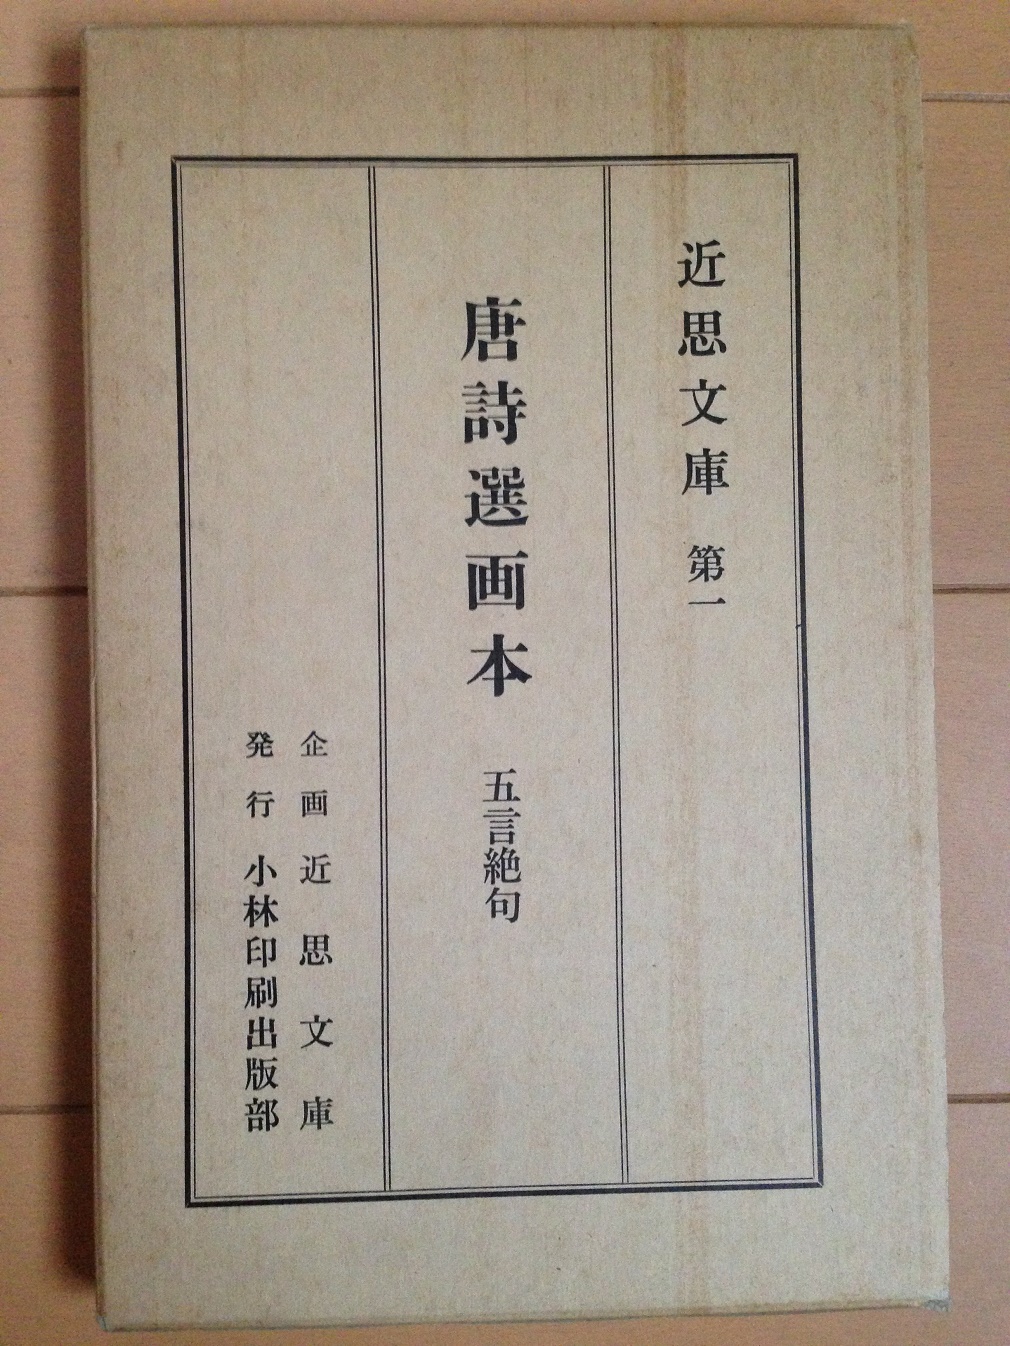 近思文庫 第一
唐詩選画本 五言絶句
企画 近思文庫
発行 小林印刷出版部